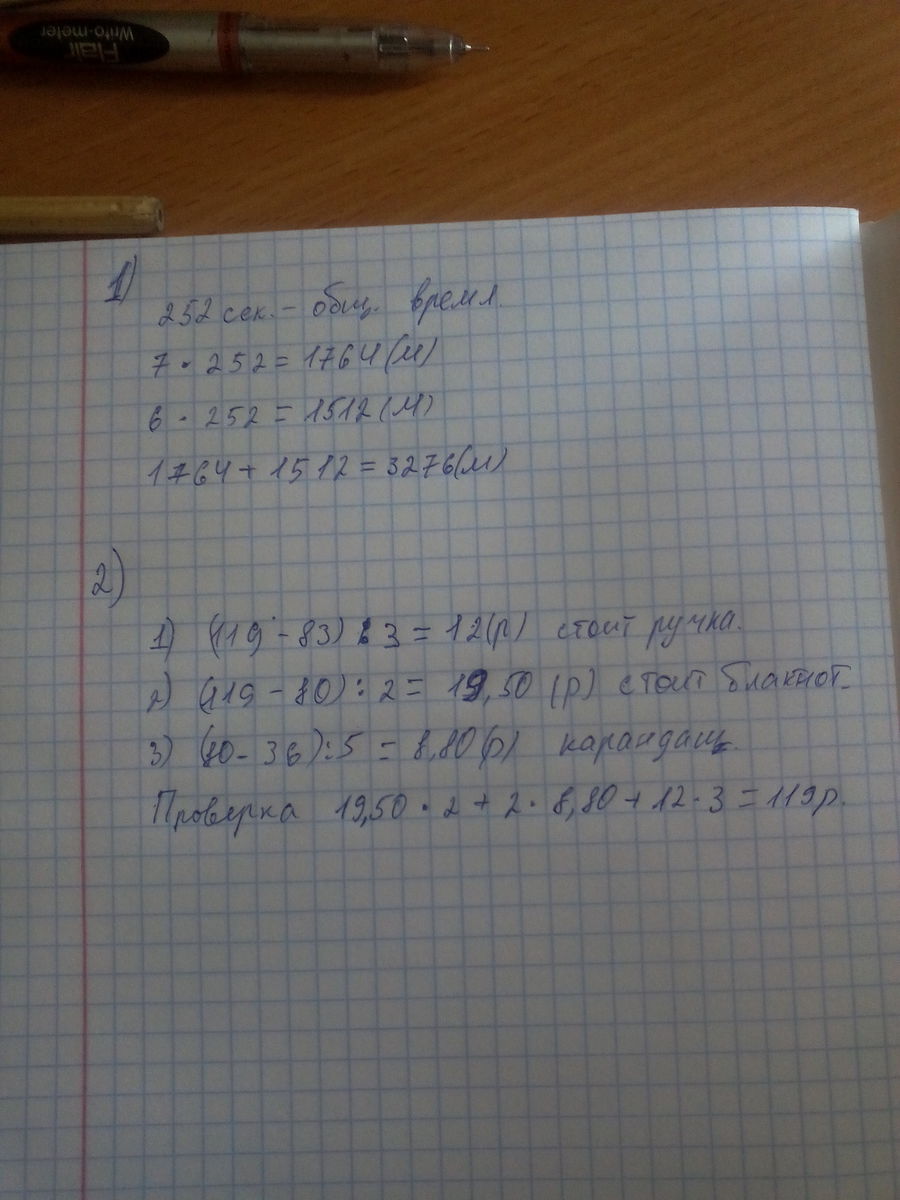 Flair
Writo-meter
1)
252 сек. – общ. время.
7 · 252 = 1764 (м)
6 · 252 = 1512 (м)
1764 + 1512 = 3276 (м)
2)
1) (119 - 83) : 3 = 12 (р) стоит ручка.
2) (119 - 80) : 2 = 19,50 (р) стоит блакнот.
3) (80 - 36) : 5 = 8,80 (р) карандаш.
Проверка 19,50 · 2 + 2 · 8,80 + 12 · 3 = 119 р.